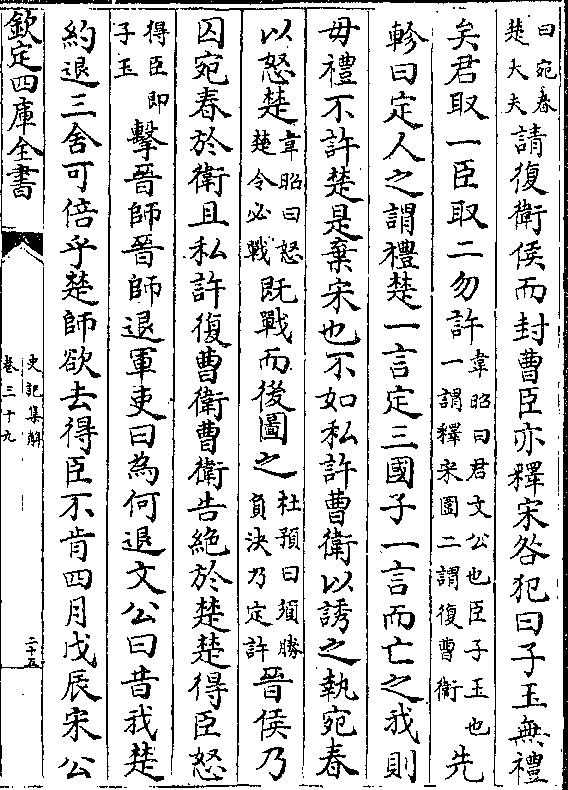 曰宛春
楚大夫
請復衛侯而封曹臣亦釋宋咎犯曰子玉無禮
矣君取一臣取二勿許
韋昭曰君文公也臣子玉也
一謂釋宋圍二謂復曹衛
先
軫曰定人之謂禮楚一言定三國子一言而亡之我則
毋禮不許楚是棄宋也不如私許曹衛以誘之執宛春
以怒楚
韋昭曰怒
楚令必戰
既戰而後圖之
杜預曰須勝
負決乃定計
晉侯乃
囚宛春於衛且私許復曹衛曹衛告絶於楚楚得臣怒
得臣即
子玉
擊晉師晉師退軍吏曰為何退文公曰昔我楚
約退三舍可倍乎楚師欲去得臣不肯四月戊辰宋公
欽定四庫全書
史記集解
卷三十九
二十五